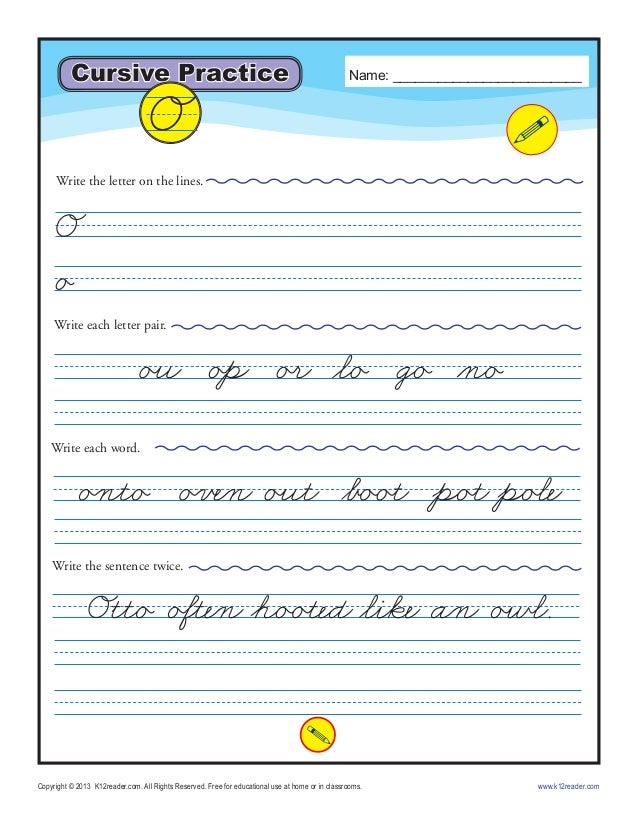 Cursive Practice
Name: ________________________
O
Write the letter on the lines.
O
o
Write each letter pair.
ou op or lo go no
Write each word.
onto oven out boot pot pole
Write the sentence twice.
Otto often hooted like an owl.
Copyright © 2013 K12reader.com. All Rights Reserved. Free for educational use at home or in classrooms. www.k12reader.com